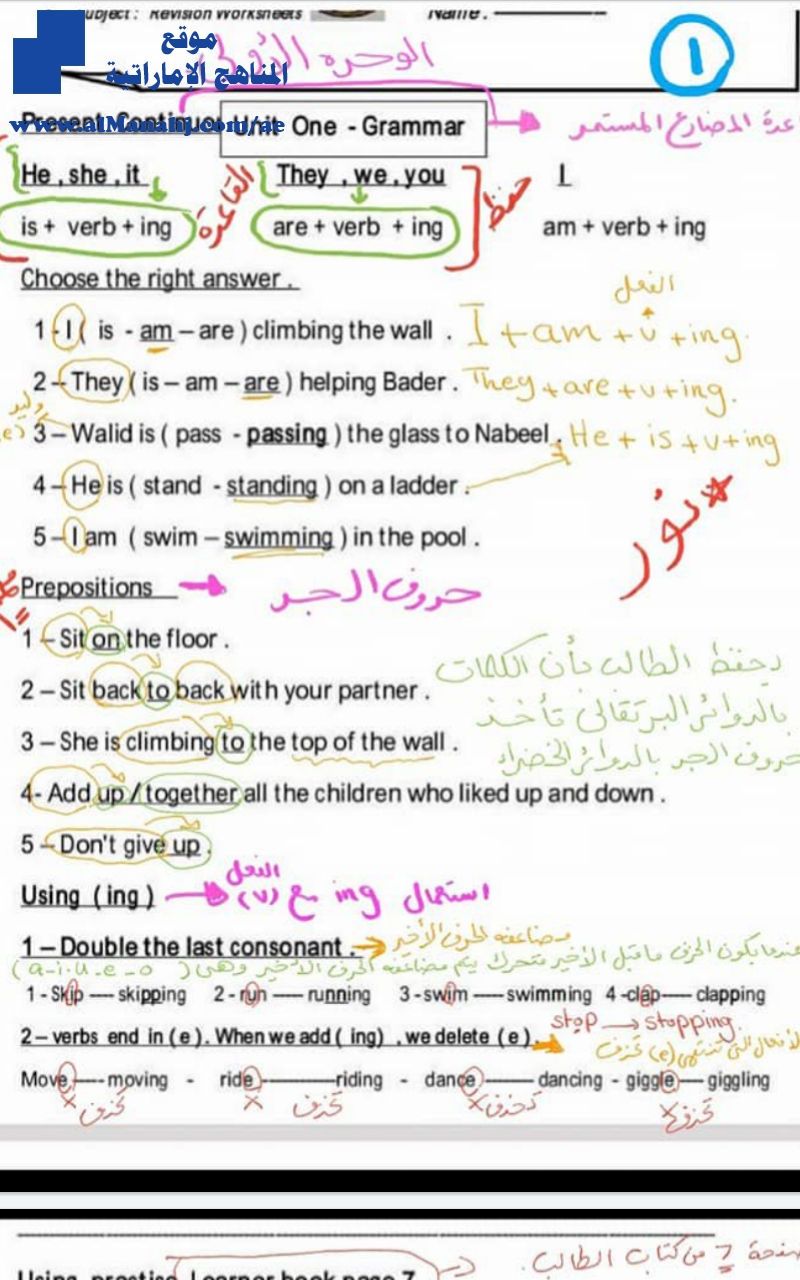 Subject : Revision Worksheets Name :
موقع
المناهج الإماراتية
www.alManahj.com/ae
الوحدة الأولى
1
Present Continuou Unit One - Grammar
المضارع المستمر
He , she , it They , we , you I
القاعدة
حفظ
is + verb + ing are + verb + ing am + verb + ing
Choose the right answer .
الفعل
1 - I ( is - am – are ) climbing the wall . I + am + v + ing.
2 – They ( is – am – are ) helping Bader . They + are + v + ing.
وليد
3 – Walid is ( pass - passing ) the glass to Nabeel . He + is + v + ing
4 – He is ( stand - standing ) on a ladder .
نور
5 – I am ( swim – swimming ) in the pool .
Prepositions حروف الجر
1 – Sit on the floor .
يحفظ الطالب بأن الكلمات
2 – Sit back to back with your partner .
بالدوائر البرتقالي تأخذ
3 – She is climbing to the top of the wall .
حروف الجر بالدوائر الخضراء
4- Add up / together all the children who liked up and down .
5 – Don't give up .
الفعل
Using ( ing ) استعمال ing مع (v)
1 – Double the last consonant . مضاعفة الحرف الأخير
عندما يكون الحرف ما قبل الأخير متحرك يتم مضاعفة الحرف الأخير وهي ( a-i-u-e-o )
1 - Skip ---- skipping 2 - run ---- running 3 -swim ---- swimming 4 -clap---- clapping
stop → stopping.
2 – verbs end in ( e ) . When we add ( ing ) , we delete ( e ) . الأفعال التي تنتهي (e) تحذف
Move ---- moving - ride --------riding - dance ------ dancing - giggle---- giggling
x تحذف x تحذف x تحذف x تحذف
صفحة 7 من كتاب الطالب.
Using practise Learner book page 7